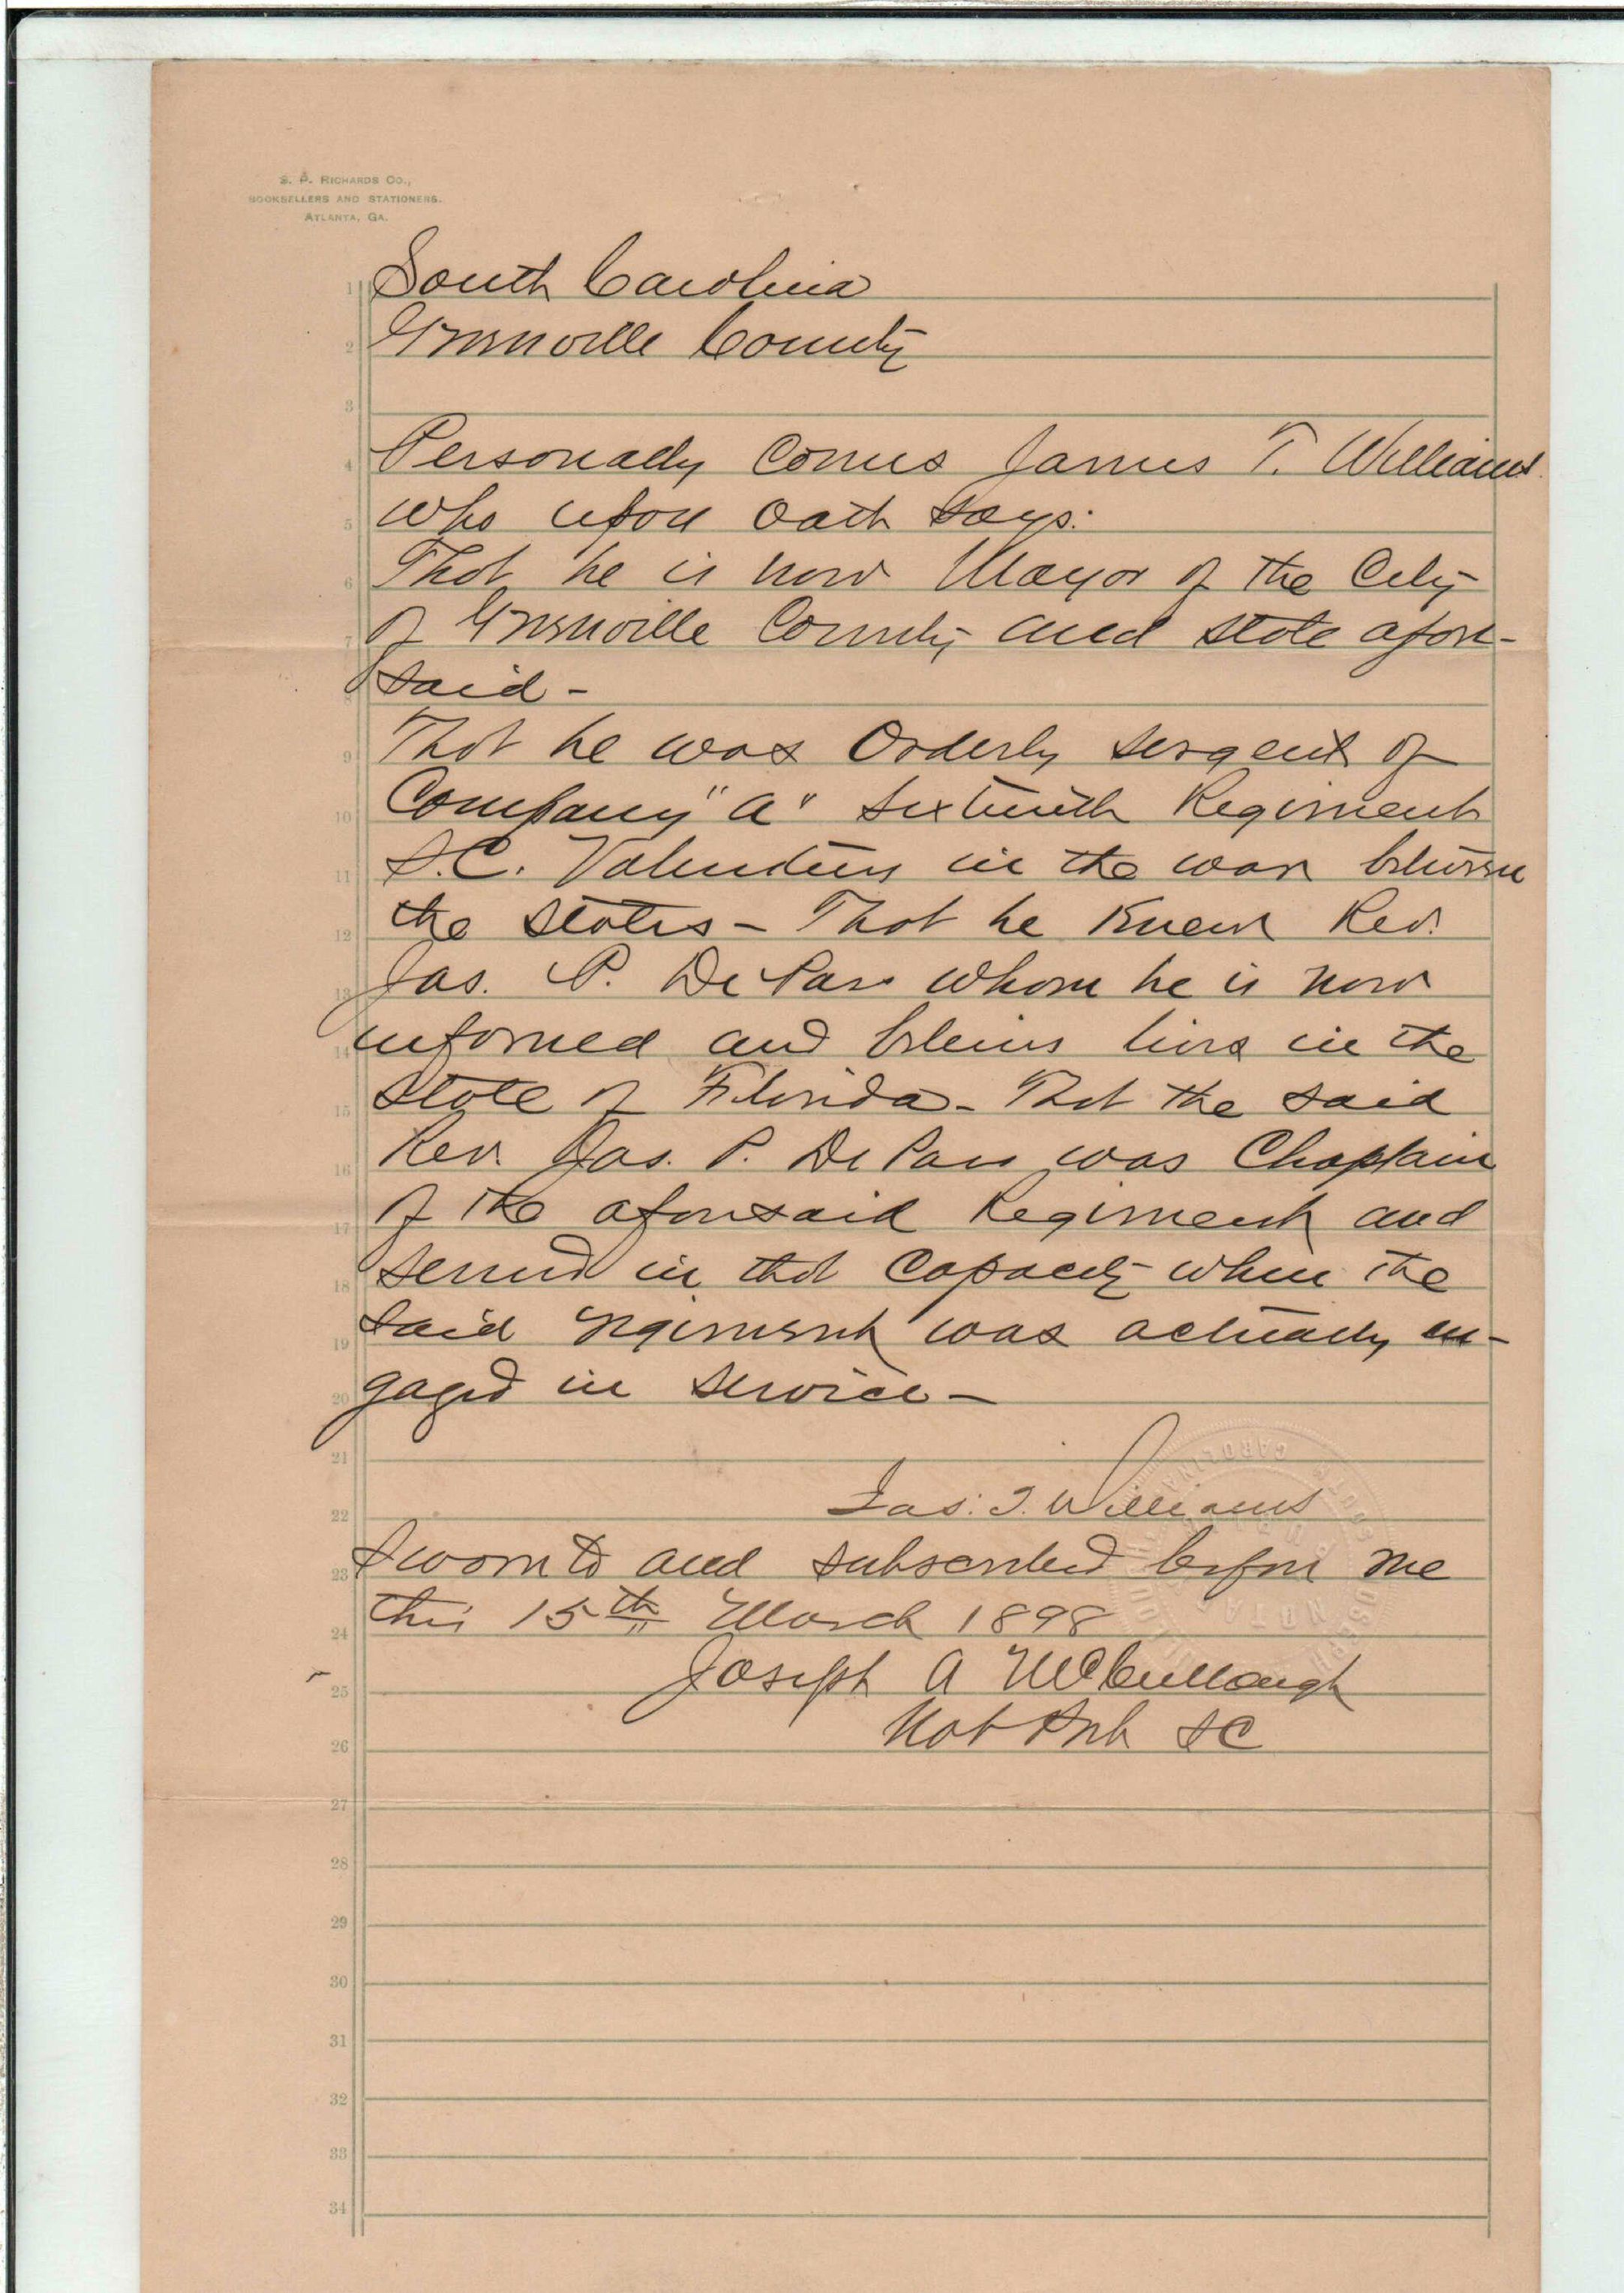 S. P. RICHARDS CO.,
BOOKSELLERS AND STATIONERS.
ATLANTA, GA.
1 South Carolina
2 Greenville County
3
4 Personally comes James T. Williams
5 who upon oath says:
6 That he is now Mayor of the City
7 of Greenville County and state afore-
8 said -
9 That he was Orderly sergent of
10 Company "A" Sixteenth Regiment
11 S.C. Volunteers in the war between
12 the states - That he knew Rev.
13 Jas. P. DePass whom he is now
14 informed and believes lives in the
15 State of Florida - That the said
16 Rev. Jas. P. DePass was Chaplain
17 of the aforesaid Regiment and
18 served in that capacity when the
19 said regiment was actually en-
20 gaged in service -
21
22 Jas. T. Williams
23 Sworn to and subscribed before me
24 this 15th March 1898
25 Joseph A McCullough
26 Not Pub SC
27
28
29
30
31
32
33
34